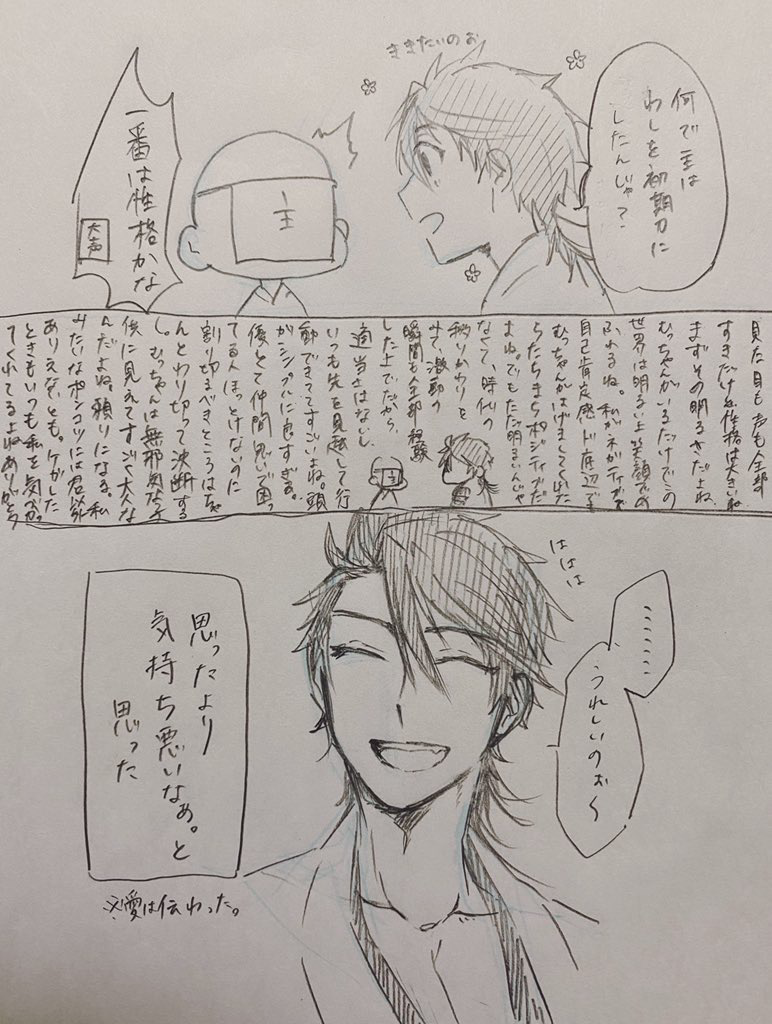 何で主は
わしを初期刀に
したんじゃ？
ききたいのお
主
一番は性格かな
大声
見た目も声も全部
すきだけど性格は大きいね
まずその明るさだよね
むっちゃんがいるだけでこの
世界は明るい上笑顔であ
ふれるね。私がネガティブで
自己肯定感ド底辺でも
むっちゃんがはげましてくれた
らたちまちポジティブだ
よね。でもただ明るいんじゃ
なくて、時代の
移りかわりを
みて、激動の
瞬間も全部経験
した上でだから
適当さはないし
いつも先を見越して行
動できててすごいよね。頭
がシンプルに良すぎる。
優しくて仲間思いで困っ
てる人ほっとけないのに
割り切るべきところはちゃ
んとわり切って決断する
し。むっちゃんは無邪気な子
供に見えてすごく大人な
んだよね。頼りになる。私
みたいなポンコツには君以外
ありえないとも。ケガした
ときもいつも私を気づかっ
てくれてるよねありがとう
主
ははは
………
うれしいのお〜
思ったより
気持ち悪いなぁ。と
思った
※愛は伝わった。